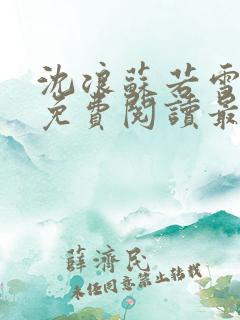 沈浪蘇若雪
免費閱讀最
薛濟民
未任同意禁止轉載